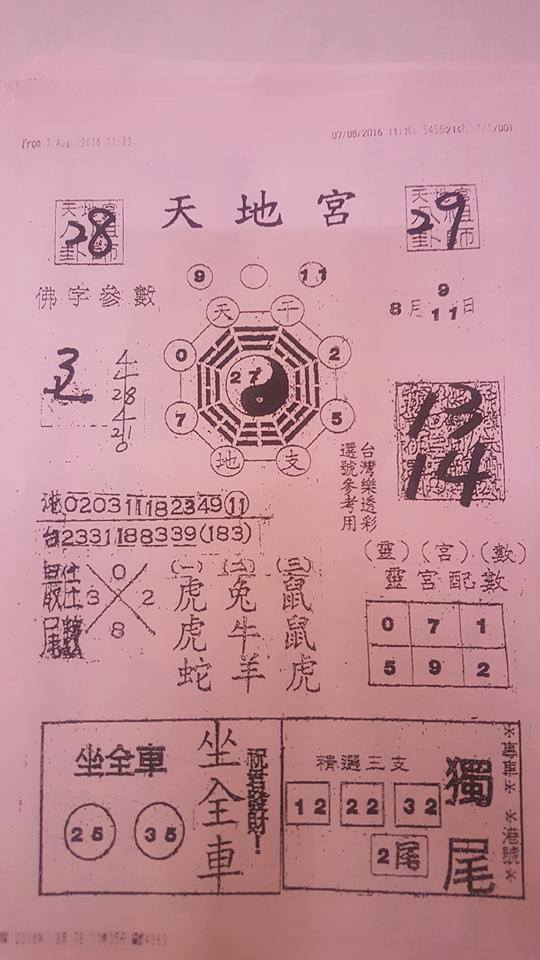 From 7 Aug 2016 11:23
07/08/2016 11:
1/1/001
天地宮
28
29
佛字參數
9
11
8月 9 11日
天 干
0
2
27
7
5
地 支
3
28
13
14
台灣樂透彩
選號參考用
港 02 03 11 18 23 49 (11)
台 23 31 18 83 39 (183)
0
3 2
8
(一) (二) (三)
虎 兔 鼠
虎 牛 鼠
蛇 羊 虎
(靈)(宮)(數)
靈宮配數
0 7 1
5 9 2
坐全車
25 35
坐全車
祝君發財!
精選三支
12 22 32
2尾
獨尾
*專車* *港號*